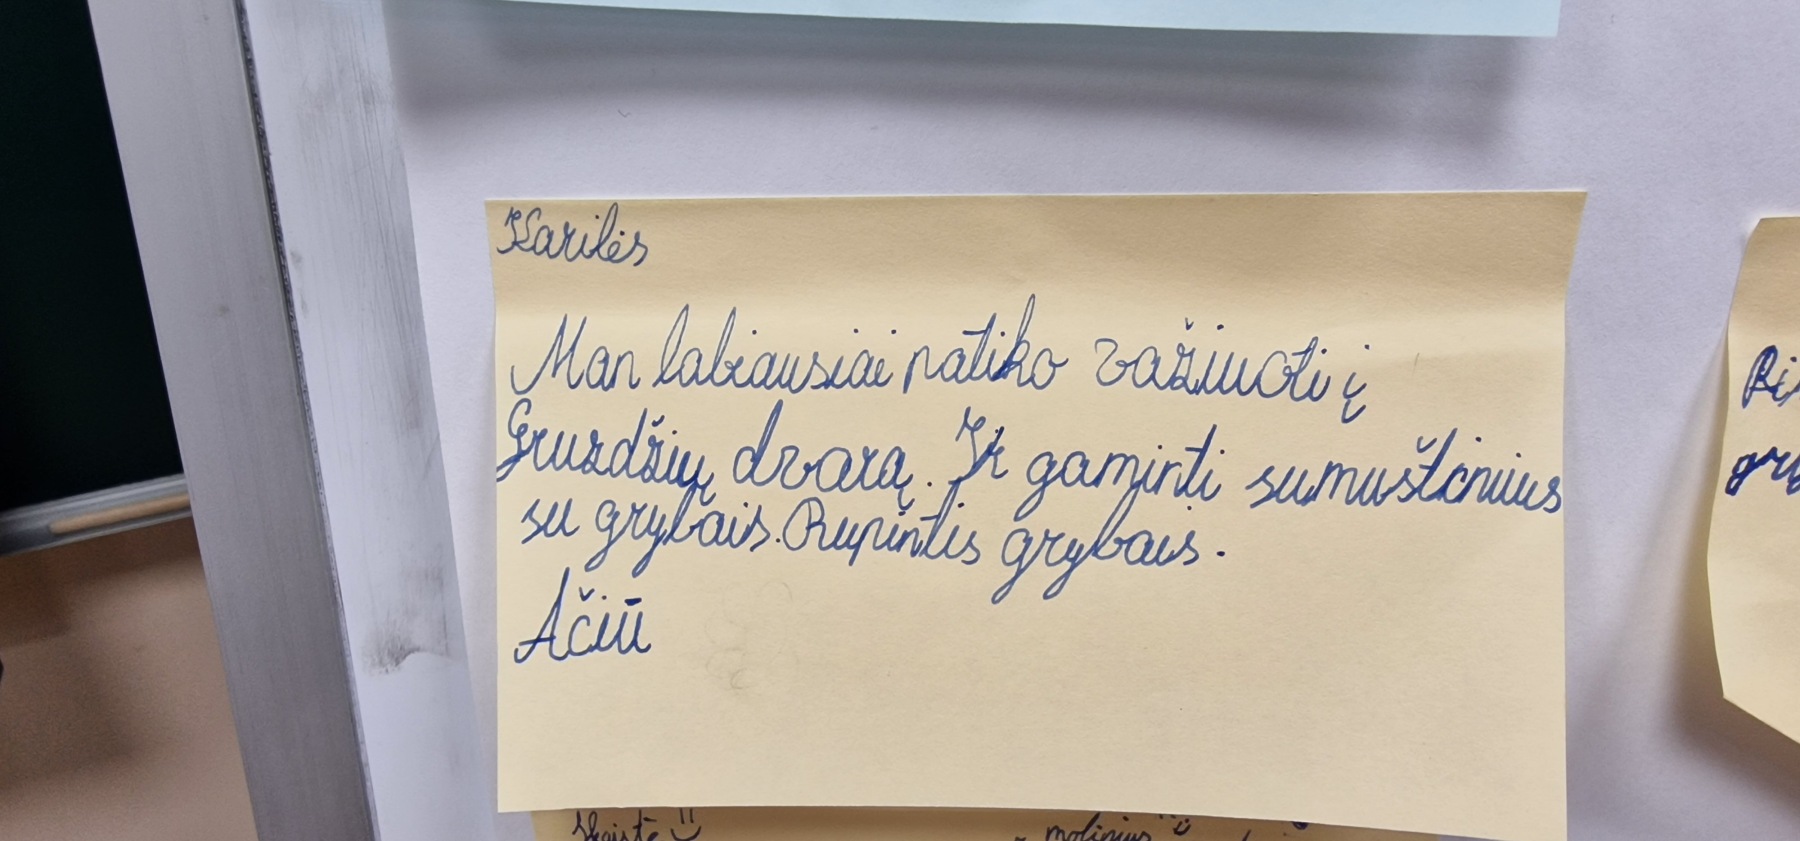 Karilės
Man labiausiai patiko važiuoti į
Gruzdžių dvarą. Ir gaminti sumuštinius
su grybais. Rupintis grybais.
Ačiū
Skaistė
molinius